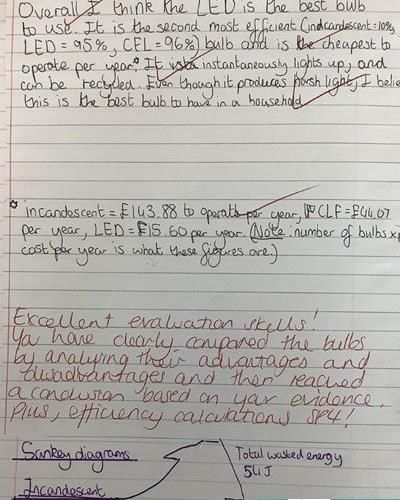 Overall I think the LED is the best bulb
to use. It is the second most efficient (indcandescent=10%,
LED = 95%, CFL = 96%) bulb and is the cheapest to
operate per year.* It instantaneously lights up, and
can be recycled. Even though it produces harsh light, I belie
this is the best bulb to have in a household
* incandescent = £143.88 to operate per year, CLF = £44.07
per year, LED = £15.60 per year. (Note: number of bulbs x
cost per year is what these figures are.)
Excellent evaluation skills!
You have clearly compared the bulbs
by analysing their advantages and
disadvantages and then reached
a conclusion based on your evidence.
Plus, efficiency calculations SP4!
Sankey diagrams
Total wasted energy
54J
Incandescent